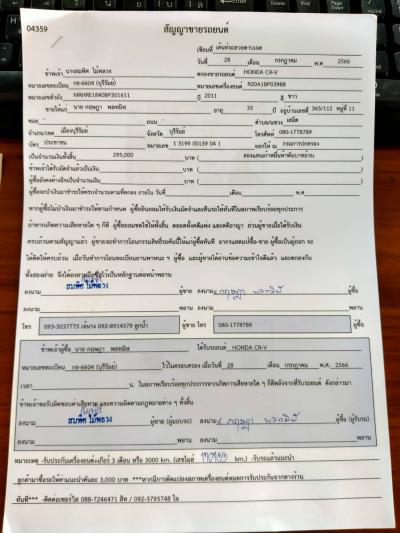 04359
สัญญาขายรถยนต์
เขียนที่ เต้นท์รถสวยตามเจต
วันที่ 28 เดือน กรกฎาคม พ.ศ. 2566
ข้าพเจ้า นางสมคิด ไม้พลวง ตกลงขายรถยนต์ HONDA CR-V
หมายเลขทะเบียน กธ-6604 (บุรีรัมย์) หมายเลขเครื่องยนต์ R20A1BP03988
หมายเลขตัวถัง MRHRE1840BP301611 ปี 2011 สี ขาว
ขายให้แก่ นาย กฤษฎา พลทมิฬ อายุ 35 ปี อยู่บ้านเลขที่ 363/112 หมู่ที่ 11
ซอย - ถนน - ตำบล/แขวง เสม็ด
อำเภอ/เขต เมืองบุรีรัมย์ จังหวัด บุรีรัมย์ โทรศัพท์ 080-1778789
บัตร ประชาชน หมายเลข 1 3199 00139 04 1 ออกให้ ณ กรมการปกครอง
เป็นจำนวนเงินทั้งสิ้น 295,000 บาท ( สองแสนเก้าหมื่นห้าพันบาทถ้วน )
ข้าพเจ้าได้รับมัดจำแล้วเป็นเงิน บาท ( )
ผู้ซื้อยังคงค้างอีกเป็นจำนวนเงิน บาท ( )
ผู้ซื้อจะนำเงินมาชำระให้ครบจำนวนตามที่ตกลง ภายใน วันที่ เดือน พ.ศ.
หากผู้ซื้อไม่นำเงินมาชำระให้ครบตามกำหนด ผู้ซื้อยินยอมให้ริบเงินมัดจำและคืนรถให้ทันทีในสภาพเรียบร้อยทุกประการ
ถ้าหากเกิดความเสียหายใด ๆ ก็ดี ผู้ซื้อยอมชดใช้ให้ทั้งสิ้น ตลอดทั้งคดีแพ่ง และคดีอาญา ส่วนผู้ขายเมื่อได้รับเงิน
ครบถ้วนตามสัญญาแล้ว ผู้ขายจะทำการโอนกรรมสิทธิ์รถคันนี้ให้แก่ผู้ซื้อทันที
ทั้งสองฝ่าย จึงได้ลงลายมือชื่อไว้เป็นหลักฐานต่อหน้าพยาน
ลงนาม สมคิด ไม้พลวง ผู้ขาย ลงนาม กฤษฎา พลทมิฬ ผู้ซื้อ
ลงนาม พยาน ลงนาม พยาน
โทร 093-5037775 092-8914379 ผู้ขาย โทร 080-1778789 ผู้ซื้อ
ข้าพเจ้าผู้ซื้อ นาย กฤษฎา พลทมิฬ ได้รับรถยนต์ HONDA CR-V
หมายเลขทะเบียน กธ-6604 (บุรีรัมย์) ไว้ในครอบครอง เมื่อวันที่ 28 เดือน กรกฎาคม พ.ศ. 2566
เวลา น. ในสภาพเรียบร้อยทุกประการหากเกิดการเสียหายใด ๆ ก็ดีหลังจากที่รับรถยนต์ ดังกล่าวมา
ข้าพเจ้าขอรับผิดชอบค่าเสียหาย และความผิดตามกฎหมายต่าง ๆ ทั้งสิ้น
ลงนาม สมคิด ไม้พลวง ผู้ขาย (ผู้มอบรถ) ลงนาม กฤษฎา พลทมิฬ ผู้ซื้อ (ผู้รับรถ)
ลงนาม พยาน ลงนาม พยาน
หมายเหตุ -รับประกันเครื่องยนต์+เกียร์ 3 เดือน หรือ 3000 km. (เลขไมล์ km.) -รับรถแล้วแนะนำ
ลูกค้ามารถให้ค่าแนะนำคันละ 3,000 บาท ***หากมีการดัดแปลงสภาพเครื่องยนต์หมดการรับประกันจากทางร้าน
ทันที*** -ติดต่อเซอร์วิส 088-7246471 สิท / 092-3795748 ใจ